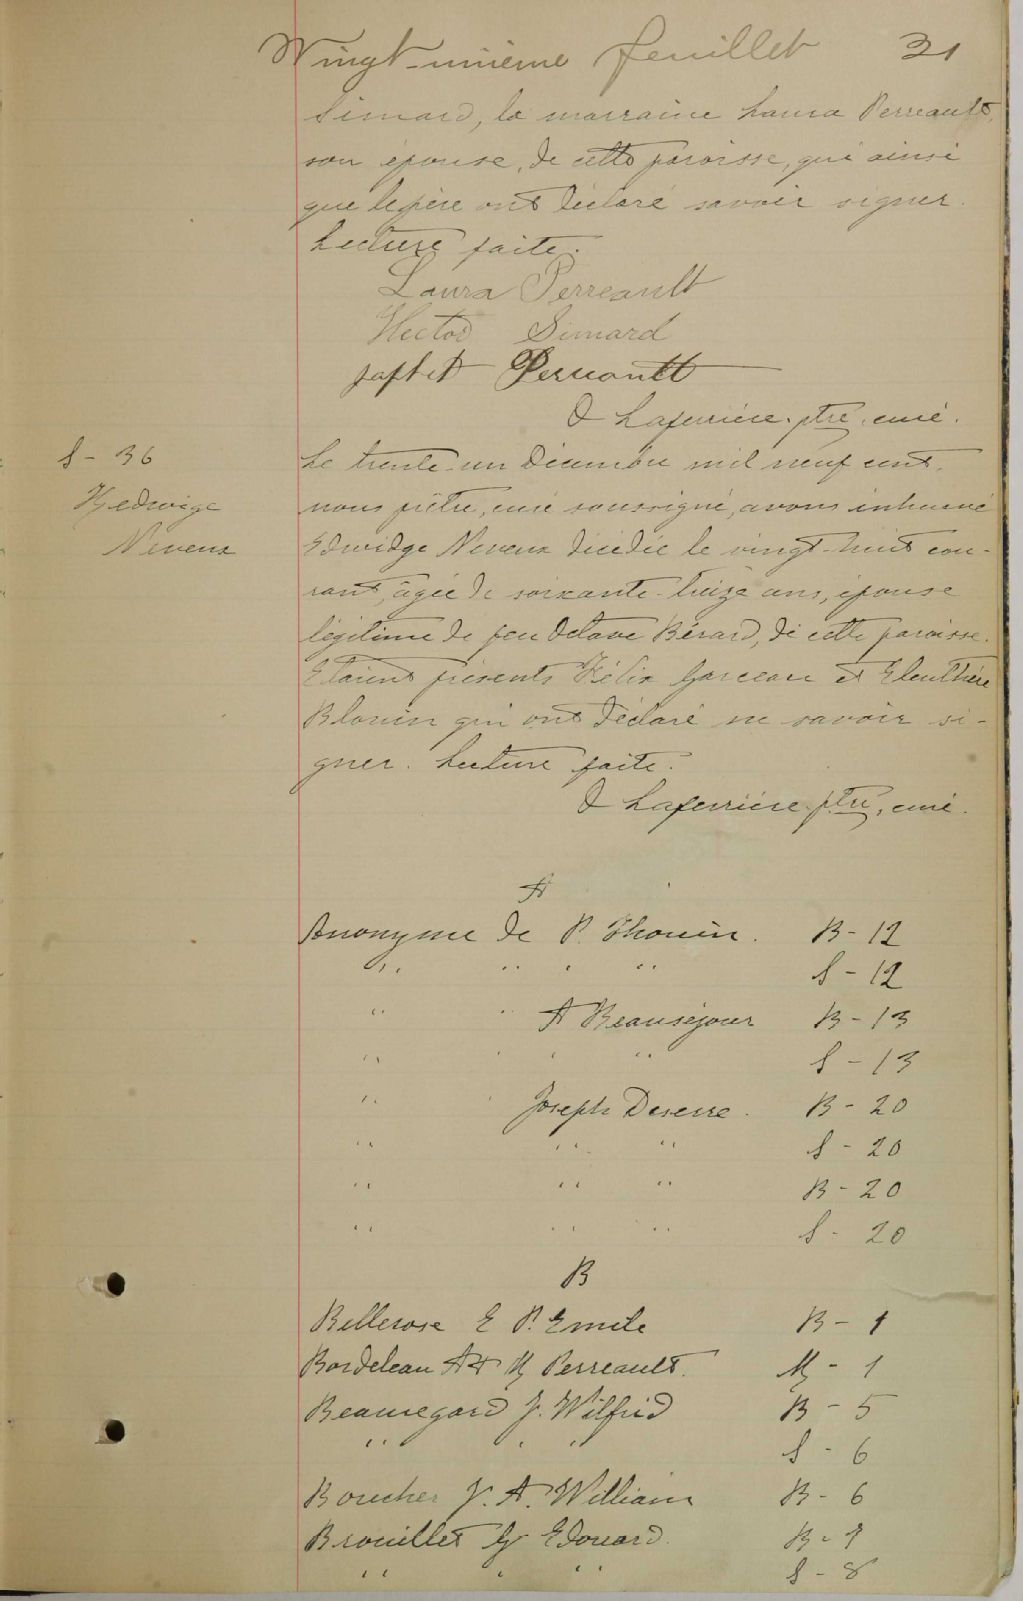 Vingt-unième feuillet 21
Simard, la marraine Laura Perreault,
son épouse, de cette paroisse, qui ainsi
que le père ont déclaré savoir signer.
Lecture faite.
Laura Perreault
Hector Simard
Japhet Perreault
O Laferrière ptre, curé.
S - 36
Hedwige
Neveux
Le trente-un Décembre mil neuf cent,
nous prêtre, curé soussigné, avons inhumé
Edwidge Neveux décédée le vingt-huit cou-
rant, âgée de soixante-treize ans, épouse
légitime de feu Octave Bérard, de cette paroisse.
Etaient présents Félix Garceau et Eleuthère
Blouin qui ont déclaré ne savoir si-
gner. Lecture faite.
O Laferrière ptre, curé.
A
Anonyme de P. Thouin. B - 12
" " " " S - 12
" " A Beauséjour B - 13
" " " S - 13
" " Joseph Deserre. B - 20
" " " S - 20
" " " B - 20
" " " S - 20
B
Bellerose E P. Emile B - 1
Bordeleau A & M Perreault. M - 1
Beauregard J. Wilfrid B - 5
" " " S - 6
Boucher J. A. William B - 6
Brouillet G Edouard. B - 7
" " " S - 8